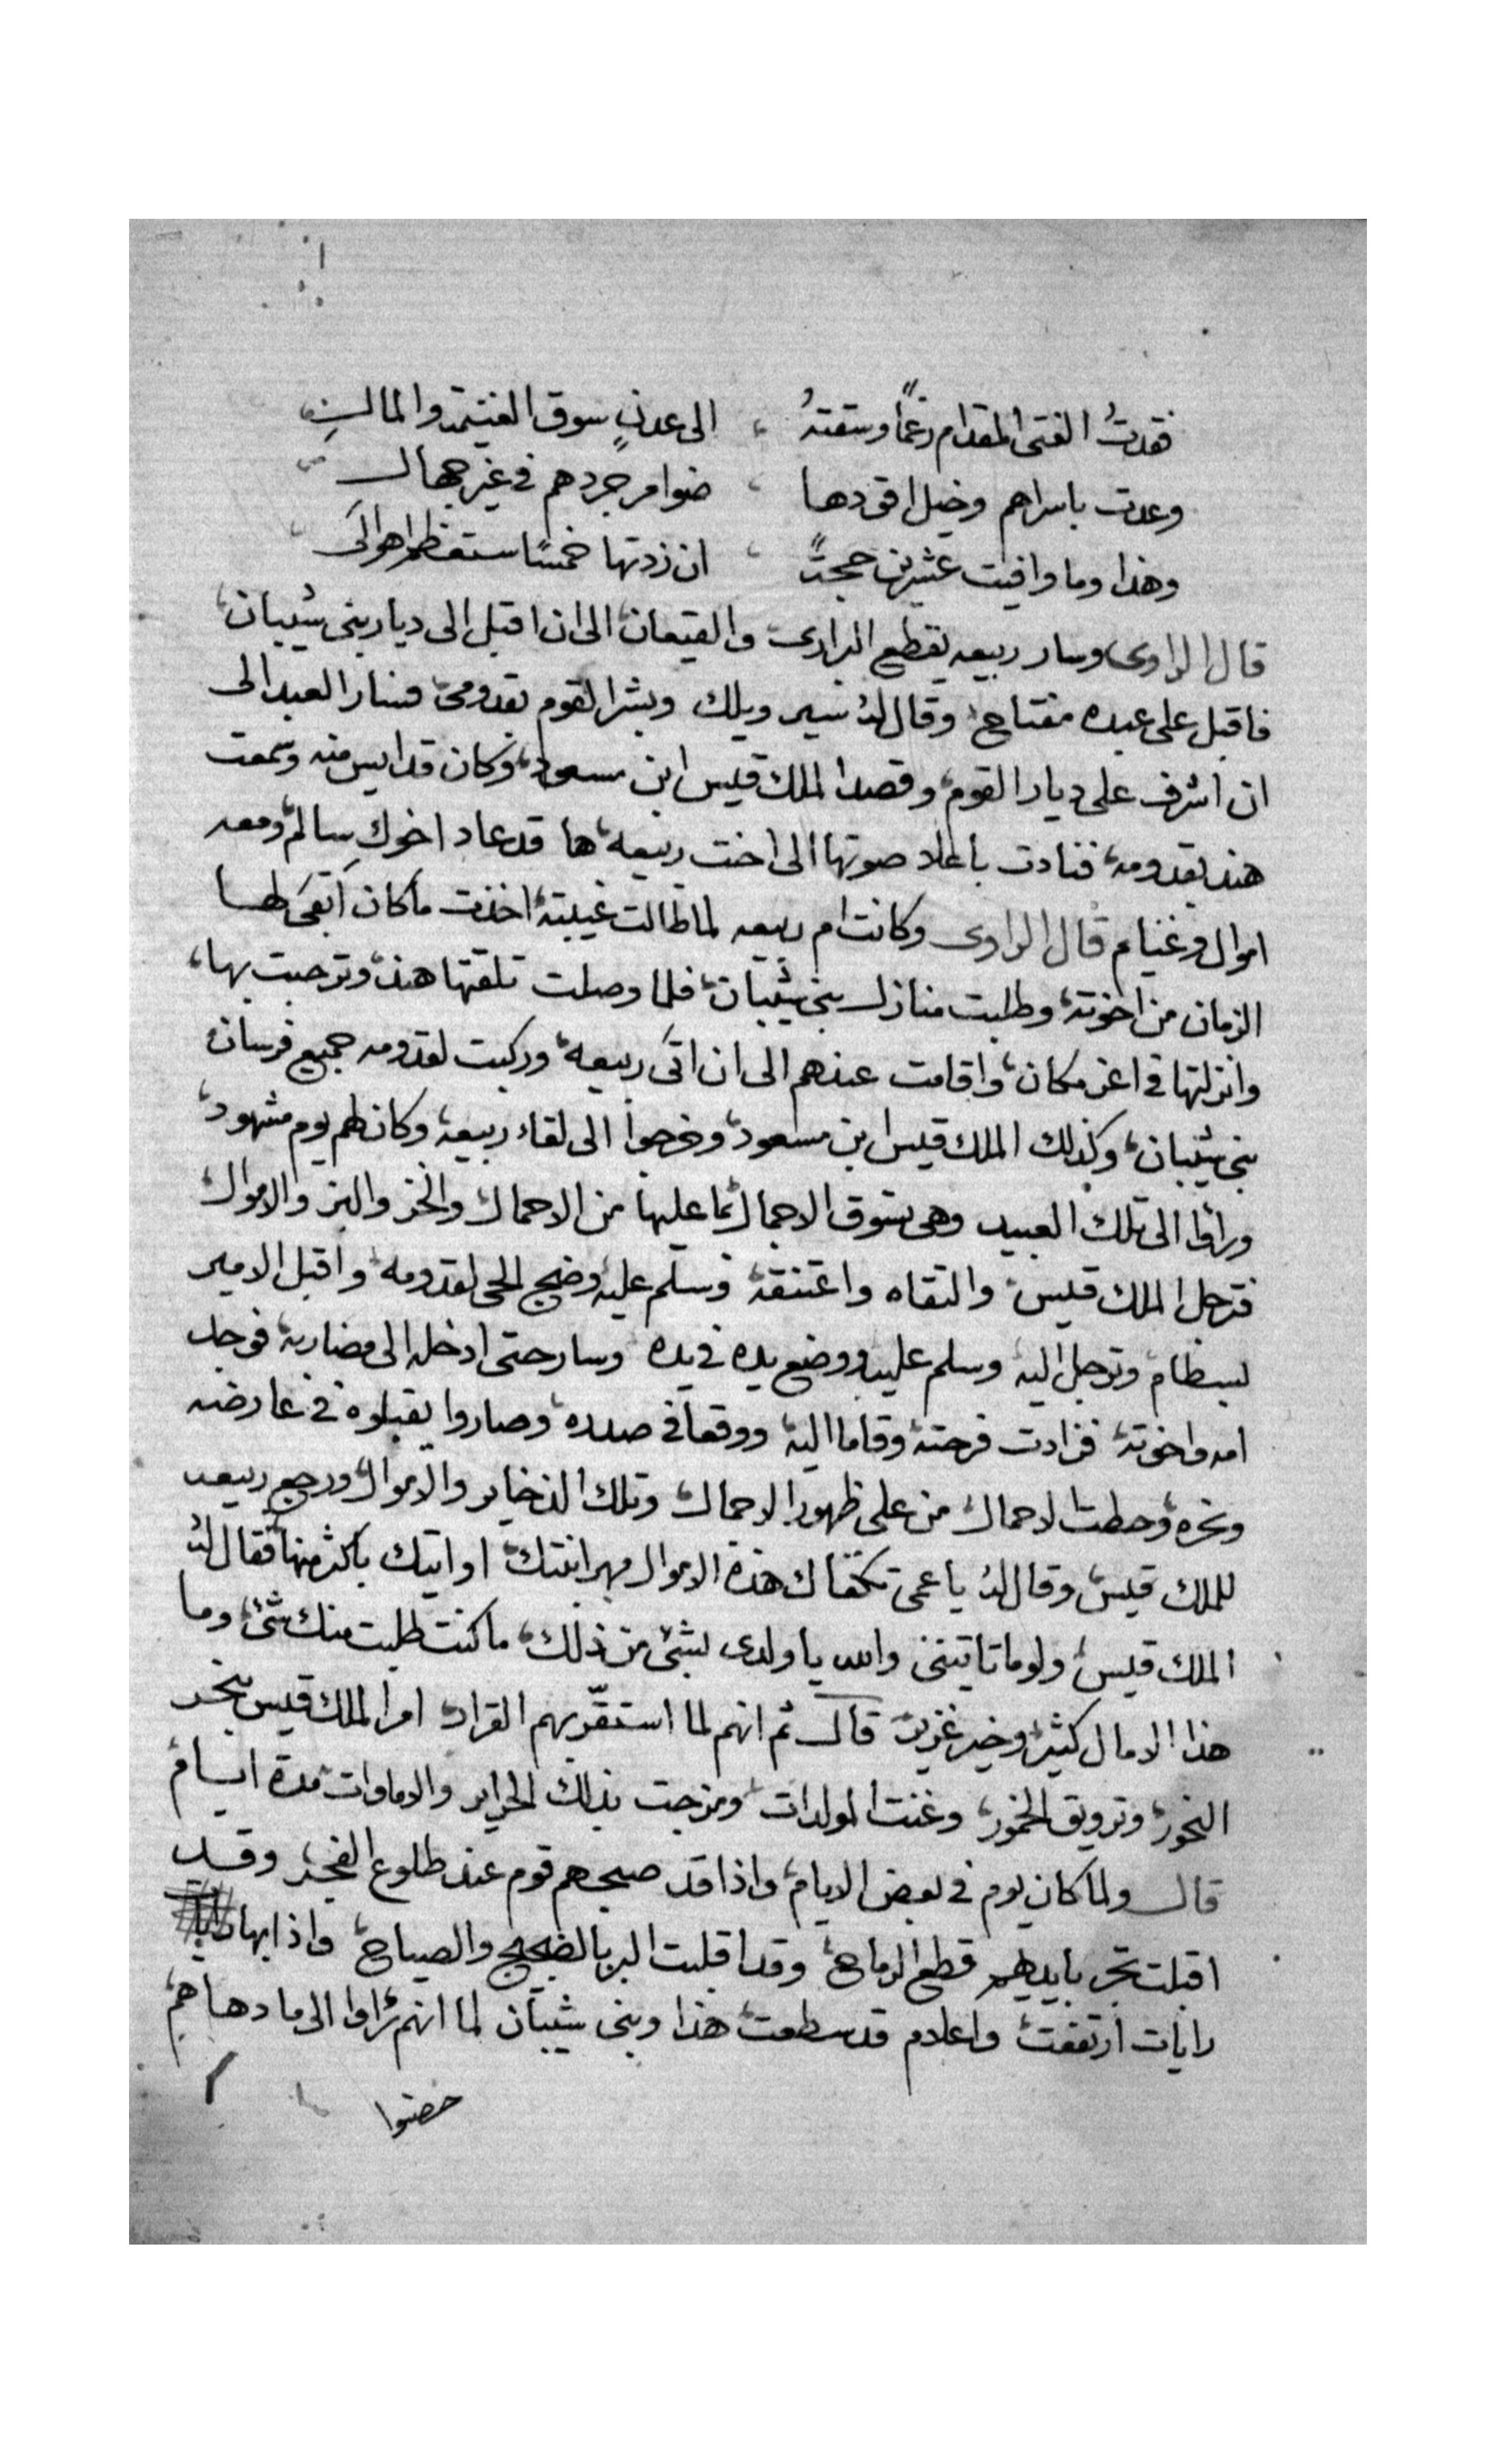 فقدتُ الفتى المقدام رغمًا وسقتهُ ، الى عدنٍ سوق الغنيمة والمالِ
وعدت باسراهم وخيل اقودها ، ضوامر جردهم في غير جهال
وهذا وما وافيت عشرين حجةً ، ان زدتها خمسًا ستعظم اهوالى
قال الراوى وسار ربيعه يقطع البرارى والقيعان الى ان اقبل الى ديار بنى شيبان
فاقبل على عبده مفتاح وقال لهُ سير ويلك وبشر القوم بقدومى فسار العبد الى
ان اشرف على ديار القوم وقصد الملك قيس ابن مسعود وكان قد ايس منه وسمعت
هند بقدومه فنادت باعلا صوتها الى اخت ربيعه ها قد عاد اخوكِ سالم ومعه
اموال وغنايم قال الراوى وكانت ام ربيعه لما طالت غيبته اخذت ما كان ابقى لها
الزمان من اخوته وطلبت منازل بنى شيبان فلما وصلت تلقتها هند وترحبت بها
وانزلتها فى اعز مكان واقامت عندهم الى ان اتى ربيعه وركبت لقدومه جميع فرسان
بنى شيبان وكذلك الملك قيس ابن مسعود وخرجوا الى لقاء ربيعه وكان لهم يوم مشهود
وراوا الى تلك العبيد وهى تسوق الاجمال بما عليها من الاحمال والخز والبز والاموال
فترجل الملك قيس والتقاه واعتنقه وسلم عليه وضج الحى لقدومه واقبل الامير
بسطام وترجل اليه وسلم عليه ووضع يده فى يده وسار حتى ادخله الى مضاربه فوجد
امه واخوته فزادت فرحته وقاما اليه ووقعا فى صدره وصاروا يقبلوه فى عارضه
ونحره وحطت الاحمال من على ظهور الاجمال وتلك الذخاير والاموال ورجع ربيعه
للملك قيس وقال لهُ يا عمى تكفاك هذه الاموال مهر ابنتك او اتيك باكثر منها فقال لهُ
الملك قيس ولو ما تاتينى والله يا ولدى بشئ من ذلك ما كنت طلبت منك شئ وما
هذا الا مال كثير وخير غزير قال ثم انهم لما استقرّ بهم القرار امر الملك قيس بنحر
النحور وترويق الخمور وغنت المولدات ومزجت بذلك الحراير والاماوات مدة ايام
قال ولما كان يوم فى بعض الايام واذا قد صبحهم قوم عند طلوع الفجر وقد
اقبلت تجر بايديهم قطع الرماح وقد اقلبت البر بالضجيج والصياح واذا بها
رايات ارتفعت واعلام قد سطعت هذا وبنى شيبان لما انهم راوا الى ما دهاهم